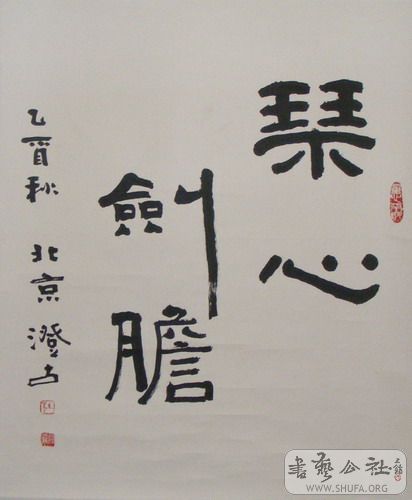 琹心
劍膽
乙酉秋 北京 澄
書藝公社
WWW.SHUFA.ORG